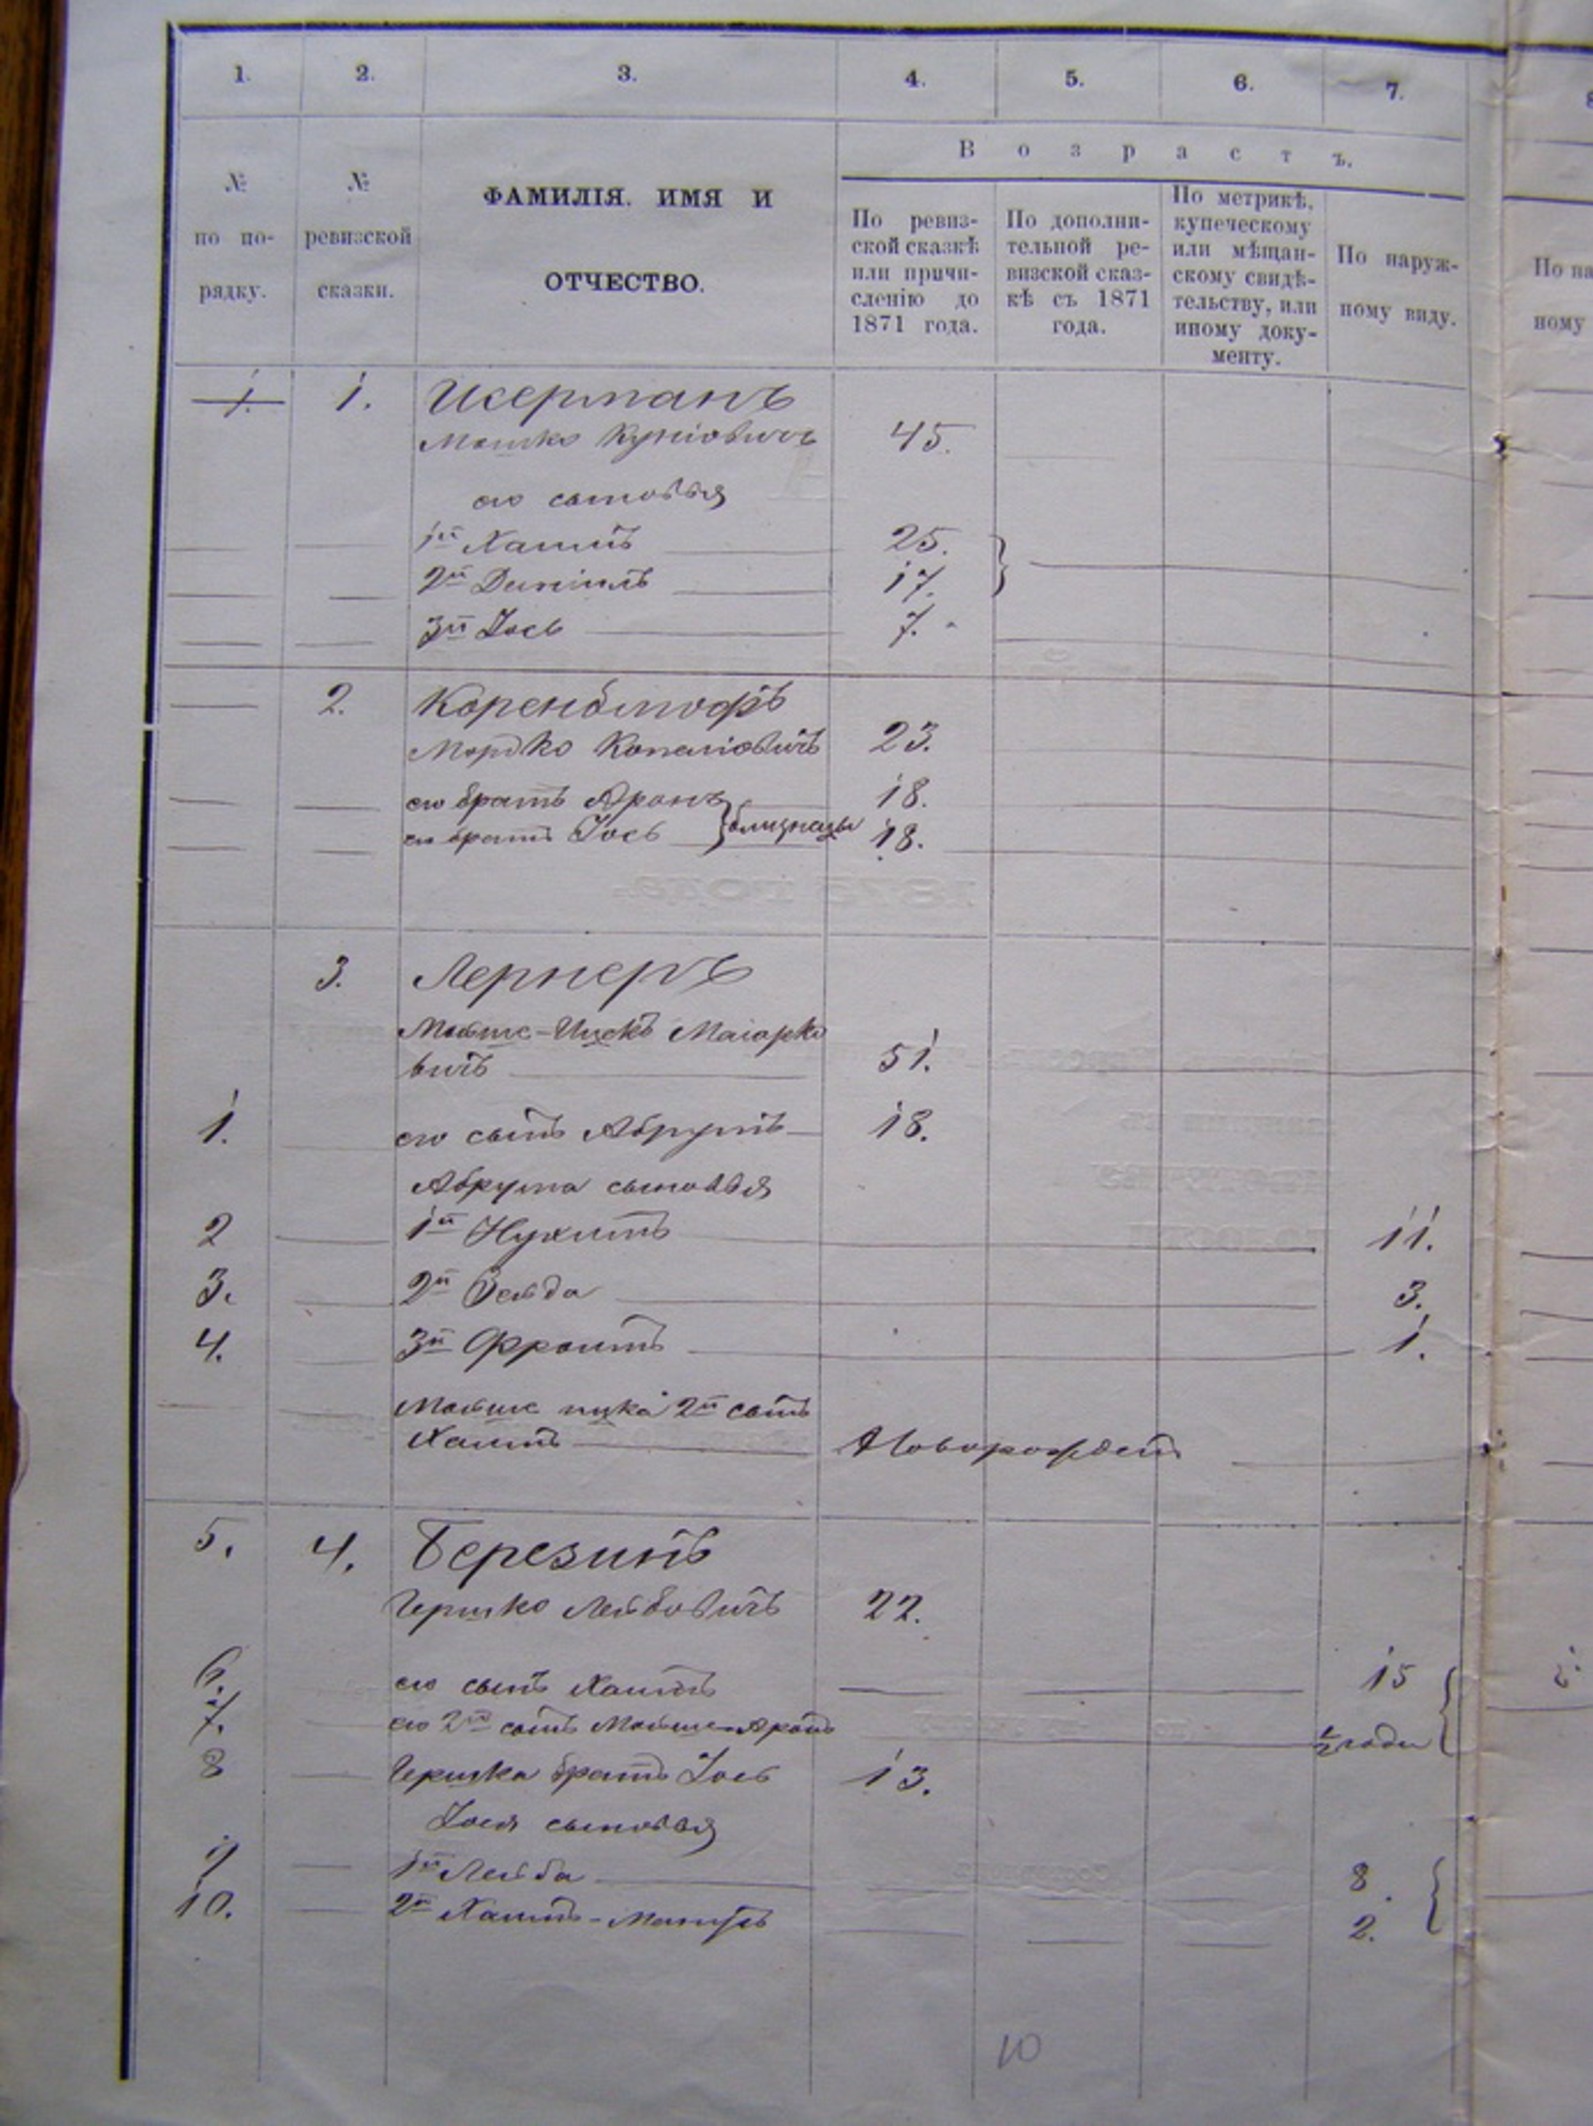 1. 2. 3. 4. 5. 6. 7.
№ по по-рядку.
№ ревизской сказки.
ФАМИЛІЯ. ИМЯ И
ОТЧЕСТВО.
Возрастъ.
По ревиз-
ской сказкѣ
или причи-
сленію до
1871 года.
По дополни-
тельной ре-
визской сказ-
кѣ съ 1871
года.
По метрикѣ,
купеческому
или мѣщан-
скому свидѣ-
тельству, или
иному доку-
менту.
По наруж-
ному виду.
1. 1. Исерманъ
Мошко Куніовичъ 45.
его сыновья
1й Хаимъ 25.
2й Даніилъ 17.
3й Іось 7.
2. Коренблюфъ
Мордко Копеліовичъ 23.
его братъ Аронъ 18.
его братъ Іось близнецы 18.
3. Лернеръ
Мовше-Ицекъ Маіорко
вичъ 51.
1. его сынъ Абрумъ 18.
Абрума сыновья
2 1й Нухимъ 11.
3. 2й Зейда 3.
4. 3й Фроимъ 1.
Мовше ицка 2й сынъ
Хаимъ Новорожден
5. 4. Березинъ
Гершко Лейбовичъ 22.
6. его сынъ Хаимъ 15
7. его 2й сынъ Мовше-Аронъ ½ года
8 Гершка братъ Іось 13.
Іося сыновья
9 1й Лейба 8.
10. 2й Хаимъ- 2.
10
По на
ному